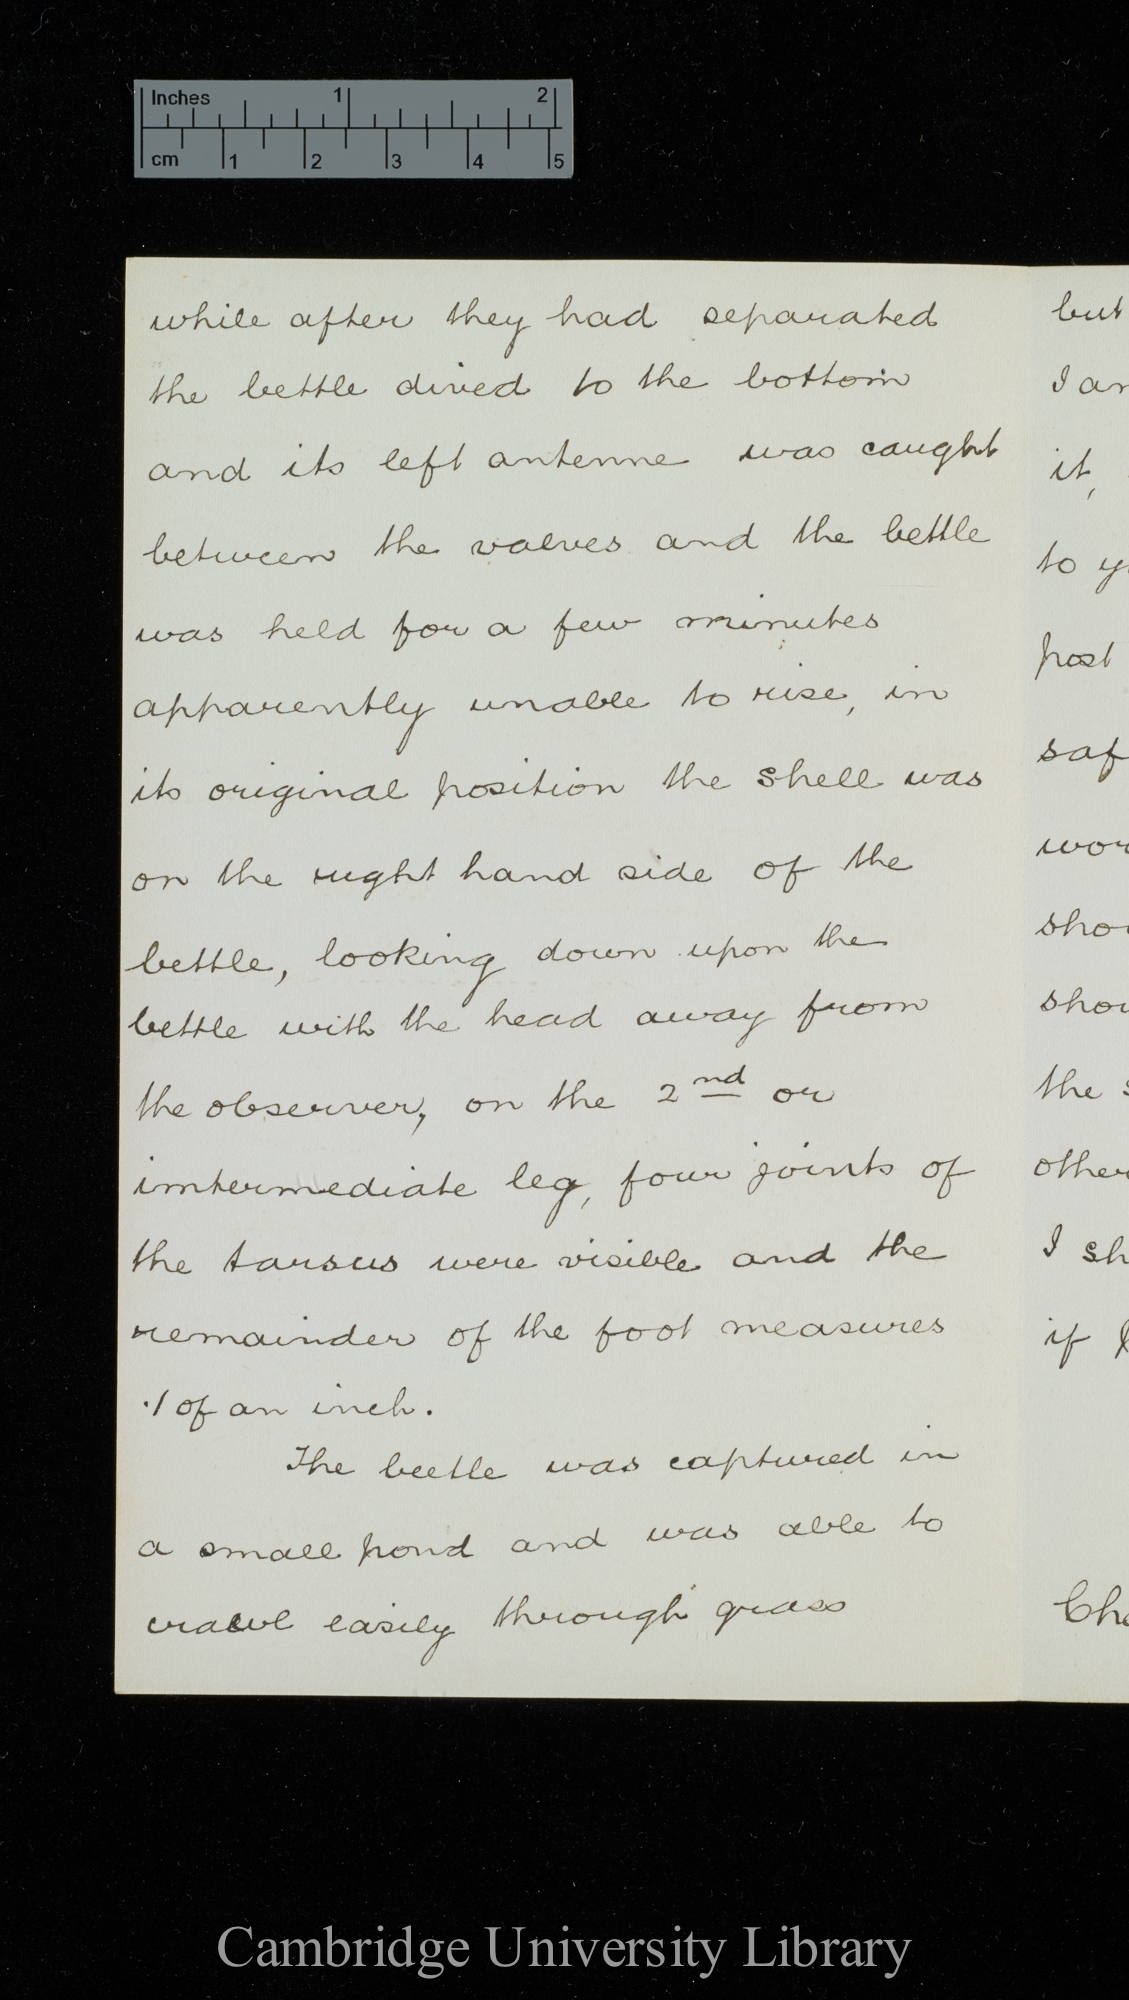 Inches 1 2
cm 1 2 3 4 5
while after they had separated
the bettle dived to the bottom
and its left antenne was caught
between the valves and the bettle
was held for a few minutes
apparently unable to rise, in
its original position the shell was
on the right hand side of the
bettle, looking down upon the
bettle with the head away from
the observer, on the 2nd or
imtermediate leg, four joints of
the tarsus were visible and the
remainder of the foot measures
·1 of an inch.
The beetle was captured in
a small pond and was able to
crawl easily through grass
but
I am
it,
to y
post
saf
wor
shou
shou
the s
other
I sh
if
Cha
Cambridge University Library